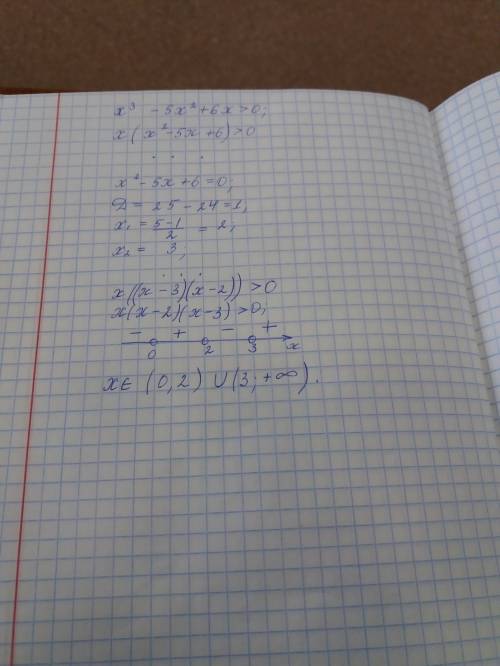 x³ - 5x² + 6x > 0;
x(x² - 5x + 6) > 0
. . .
x² - 5x + 6 = 0;
D = 25 - 24 = 1,
x₁ = (5-1)/2 = 2,
x₂ = 3;
. . .
x((x - 3)(x - 2)) > 0
x(x - 2)(x - 3) > 0;
- + - +
0 2 3 x
x ∈ (0, 2) ∪ (3; +∞).